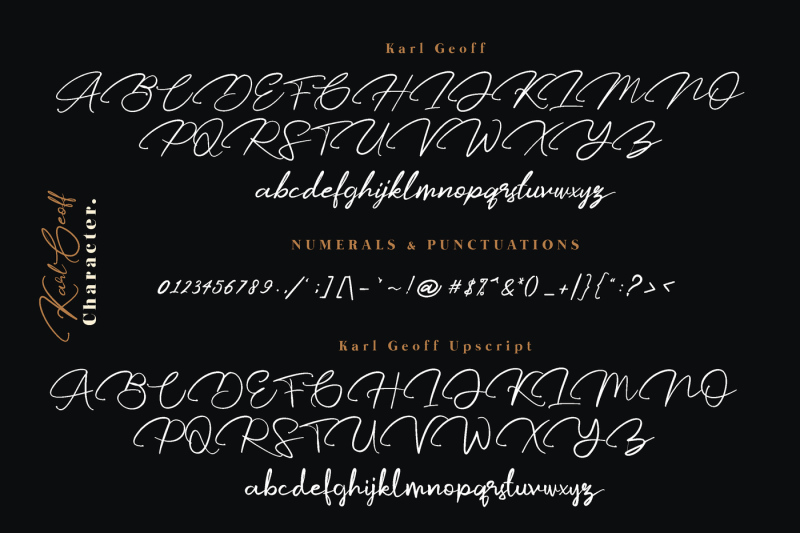 Karl Geoff
ABCDEFGHIJKLMNO
PQRSTUVWXYZ
abcdefghijklmnopqrstuvwxyz
Karl Geoff
Character.
NUMERALS & PUNCTUATIONS
0123456789.,/‘;][/\-`~!@#$%^&*()_+|}{“:?><
Karl Geoff Upscript
ABCDEFGHIJKLMNO
PQRSTUVWXYZ
abcdefghijklmnopqrstuvwxyz